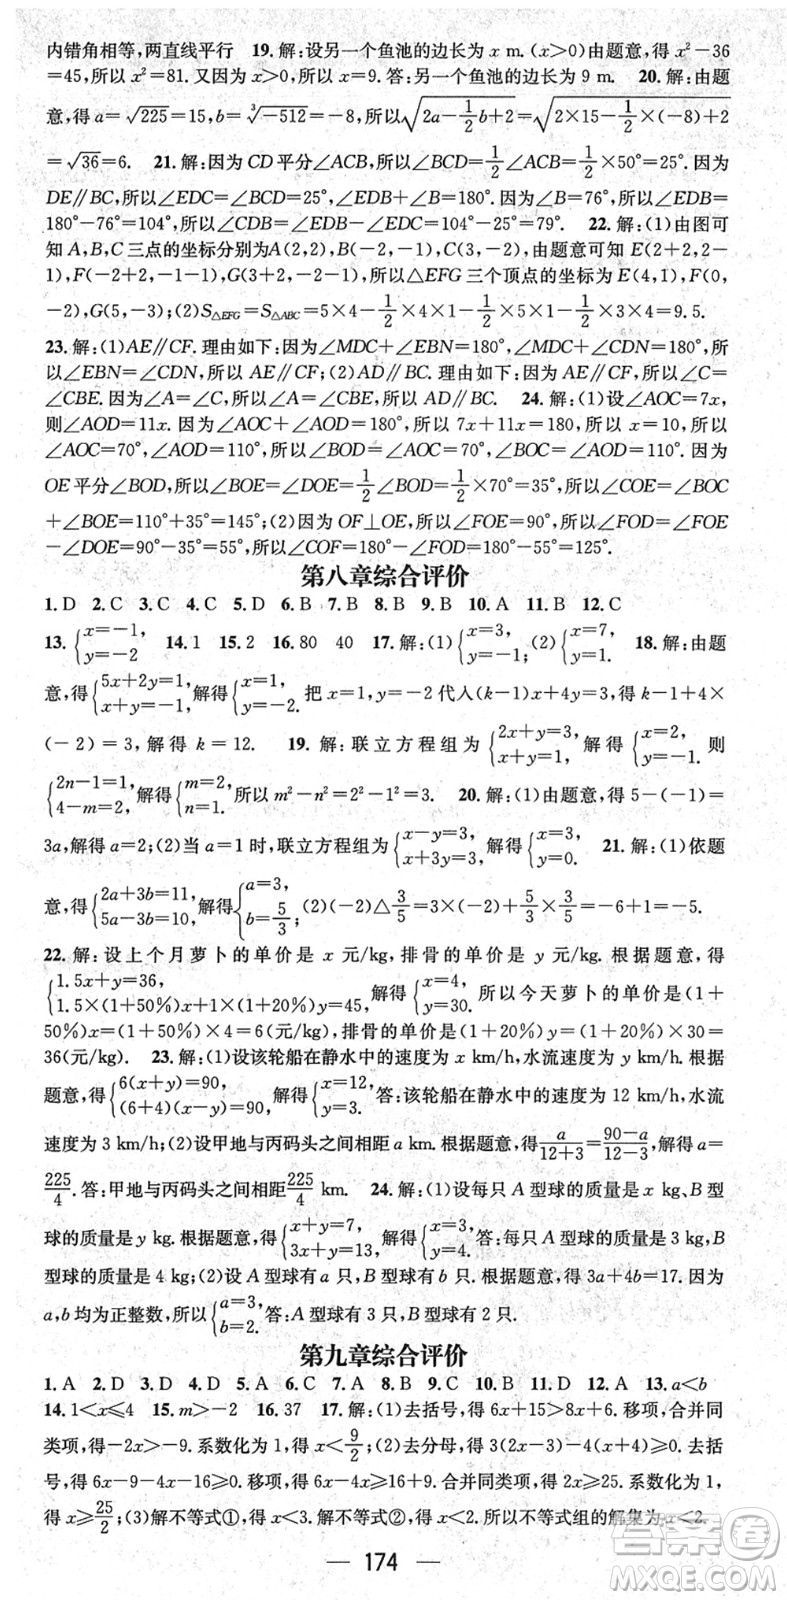 内错角相等,两直线平行　19. 解:设另一个鱼池的边长为 x m. (x>0)由题意,得 x²-36
=45,所以 x²=81. 又因为 x>0,所以 x=9. 答:另一个鱼池的边长为 9 m.　20. 解:由题
意,得 a=√225=15,b=∛-512=-8,所以√(2a-1/2b+2)=√(2×15-1/2×(-8)+2)
=√36=6.　21. 解:因为 CD 平分∠ACB,所以∠BCD=1/2∠ACB=1/2×50°=25°. 因为
DE∥BC,所以∠EDC=∠BCD=25°,∠EDB+∠B=180°. 因为∠B=76°,所以∠EDB=
180°-76°=104°,所以∠CDB=∠EDB-∠EDC=104°-25°=79°.　22. 解:(1)由图可
知 A,B,C 三点的坐标分别为A(2,2),B(-2,-1),C(3,-2),由题意可知 E(2+2,2-
1),F(-2+2,-1-1),G(3+2,-2-1),所以△EFG 三个顶点的坐标为 E(4,1),F(0,
-2),G(5,-3);(2)S△EFG=S△ABC=5×4-1/2×4×1-1/2×5×1-1/2×3×4=9.5.
23. 解:(1)AE∥CF. 理由如下:因为∠MDC+∠EBN=180°,∠MDC+∠CDN=180°,所
以∠EBN=∠CDN,所以 AE∥CF;(2)AD∥BC. 理由如下:因为 AE∥CF,所以∠C=
∠CBE. 因为∠A=∠C,所以∠A=∠CBE,所以 AD∥BC.　24. 解:(1)设∠AOC=7x,
则∠AOD=11x. 因为∠AOC+∠AOD=180°,所以 7x+11x=180,所以 x=10,所以
∠AOC=70°,∠AOD=110°,所以∠BOD=∠AOC=70°,∠BOC=∠AOD=110°. 因为
OE 平分∠BOD,所以∠BOE=∠DOE=1/2∠BOD=1/2×70°=35°,所以∠COE=∠BOC
+∠BOE=110°+35°=145°;(2)因为 OF⊥OE,所以∠FOE=90°,所以∠FOD=∠FOE
-∠DOE=90°-35°=55°,所以∠COF=180°-∠FOD=180°-55°=125°.
第八章综合评价
1. D　2. C　3. C　4. C　5. D　6. B　7. B　8. B　9. B　10. A　11. B　12. C
13. {x=-1, y=-2　14. 1　15. 2　16. 80　40　17. 解:(1){x=3, y=-1;　(2){x=7, y=1.　18. 解:由题
意,得{5x+2y=1, x+y=-1,解得{x=1, y=-2. 把 x=1,y=-2 代入(k-1)x+4y=3,得 k-1+4×
(-2)=3,解得 k=12.　19. 解:联立方程组为{2x+y=3, x+y=1,解得{x=2, y=-1. 则
{2n-1=1, 4-m=2,解得{m=2, n=1. 所以 m²-n²=2²-1²=3.　20. 解:(1)由题意,得 5-(-1)=
3a,解得 a=2;(2)当 a=1 时,联立方程组为{x-y=3, x+3y=3,解得{x=3, y=0.　21. 解:(1)依题
意,得{2a+3b=11, 5a-3b=10,解得{a=3, b=5/3;(2)(-2)△3/5=3×(-2)+5/3×3/5=-6+1=-5.
22. 解:设上个月萝卜的单价是 x 元/kg,排骨的单价是 y 元/kg. 根据题意,得
{1.5x+y=36, 1.5×(1+50%)x+1×(1+20%)y=45,解得{x=4, y=30. 所以今天萝卜的单价是(1+
50%)x=(1+50%)×4=6(元/kg),排骨的单价是(1+20%)y=(1+20%)×30=
36(元/kg).　23. 解:(1)设该轮船在静水中的速度为 x km/h,水流速度为 y km/h. 根据
题意,得{6(x+y)=90, (6+4)(x-y)=90,解得{x=12, y=3. 答:该轮船在静水中的速度为 12 km/h,水流
速度为 3 km/h;(2)设甲地与丙码头之间相距 a km. 根据题意,得 a/(12+3)=(90-a)/(12-3),解得 a=
225/4. 答:甲地与丙码头之间相距225/4 km.　24. 解:(1)设每只 A 型球的质量是 x kg、B 型
球的质量是 y kg. 根据题意,得{x+y=7, 3x+y=13,解得{x=3, y=4. 答:每只 A 型球的质量是 3 kg,B
型球的质量是 4 kg;(2)设 A 型球有 a 只,B 型球有 b 只. 根据题意,得 3a+4b=17. 因为
a,b 均为正整数,所以{a=3, b=2. 答:A 型球有 3 只,B 型球有 2 只.
第九章综合评价
1. A　2. D　3. D　4. A　5. A　6. C　7. A　8. B　9. C　10. B　11. D　12. A　13. a<b
14. 1<x≤4　15. m>-2　16. 37　17. 解:(1)去括号,得 6x+15>8x+6. 移项,合并同
类项,得-2x>-9. 系数化为 1,得 x<9/2;(2)去分母,得 3(2x-3)-4(x+4)≥0. 去括
号,得 6x-9-4x-16≥0. 移项,得 6x-4x≥16+9. 合并同类项,得 2x≥25. 系数化为 1,
得 x≥25/2;(3)解不等式①,得 x<3. 解不等式②,得 x<2. 所以不等式组的解集为 x<2.
— 174 —
答案圈
MXQE.COM